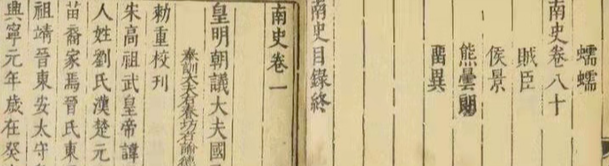 蠕蠕
南史卷八十
賊臣
侯景
熊曇朗
畱異
南史目錄終
南史卷一
皇明朝議大夫國
奉訓大夫右春坊右諭德
勑重校刊
宋高祖武皇帝諱
人姓劉氏漢楚元
苗裔家焉晉氏東
祖靖晉東安太守
興寧元年歲在癸